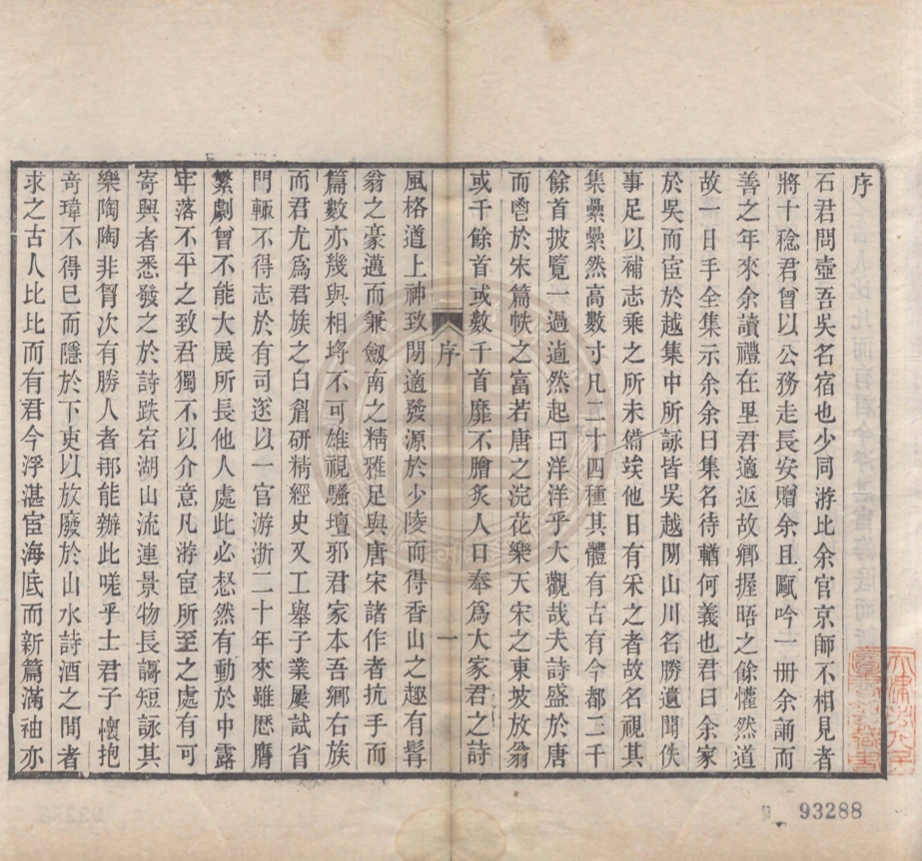 序
石君問壺吾吳名宿也少同游比余官京師不相見者
將十稔君曾以公務走長安贈余且甌吟一冊余誦而
善之年來余讀禮在里君適返故鄉握晤之餘懽然道
故一日手全集示余余曰集名待輶何義也君曰余家
於吳而宦於越集中所詠皆吳越閒山川名勝遺聞佚
事足以補志乘之所未備竢他日有采之者故名視其
集纍纍然高數寸凡二十四種其體有古有今都二千
餘首披覽一過逌然起曰洋洋乎大觀哉夫詩盛於唐
而鬯於宋篇帙之富若唐之浣花樂天宋之東坡放翁
或千餘首或數千首靡不膾炙人口奉爲大家君之詩
序
一
風格遒上神致閒適發源於少陵而得香山之趣有髯
翁之豪邁而兼劔南之精雅足與唐宋諸作者抗手而
篇數亦幾與相埒不可雄視騷壇邪君家本吾鄉右族
而君尤爲君族之白睂研精經史又工舉子業屢試省
門輒不得志於有司遂以一官游浙二十年來雖歷膺
繁劇曾不能大展所長他人處此必愸然有動於中露
牢落不平之致君獨不以介意凡游宦所至之處有可
寄興者悉發之於詩跌宕湖山流連景物長謌短詠其
樂陶陶非胷次有勝人者那能辦此嗟乎士君子懷抱
奇瑋不得巳而隱於下吏以放廢於山水詩酒之閒者
求之古人比比而有君今浮湛宦海底而新篇滿袖亦
93288